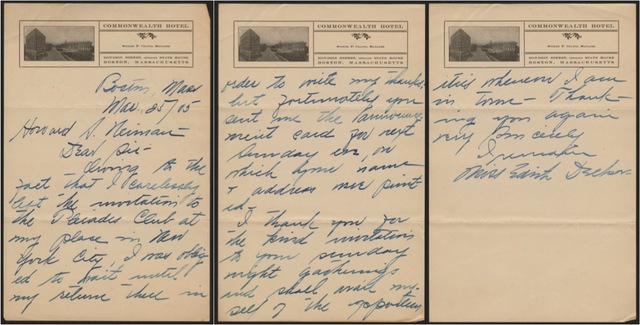 COMMONWEALTH HOTEL
BOWDOIN STREET, OPPOSITE STATE HOUSE
BOSTON, MASSACHUSETTS
Boston, Mass
Mar. 25/05
Howard S. Neiman—
Dear Sir—
Owing to the
fact that I carelessly
left the invitation to
the Pleiades Club at
my place in New
York City, I was oblig-
ed to wait until
my return there in
COMMONWEALTH HOTEL
BOWDOIN STREET, OPPOSITE STATE HOUSE
BOSTON, MASSACHUSETTS
order to write my thanks,
but fortunately you
sent me the announce-
ment card for next
Sunday eve, on
which your name
& address were print-
ed—
I thank you for
the kind invitation
to your Sunday
night gatherings
and shall avail my-
self of the opportun
COMMONWEALTH HOTEL
BOWDOIN STREET, OPPOSITE STATE HOUSE
BOSTON, MASSACHUSETTS
ities whenever I am
in town— Thank-
ing you again
very sincerely
I remain
Miss Edith Decker—